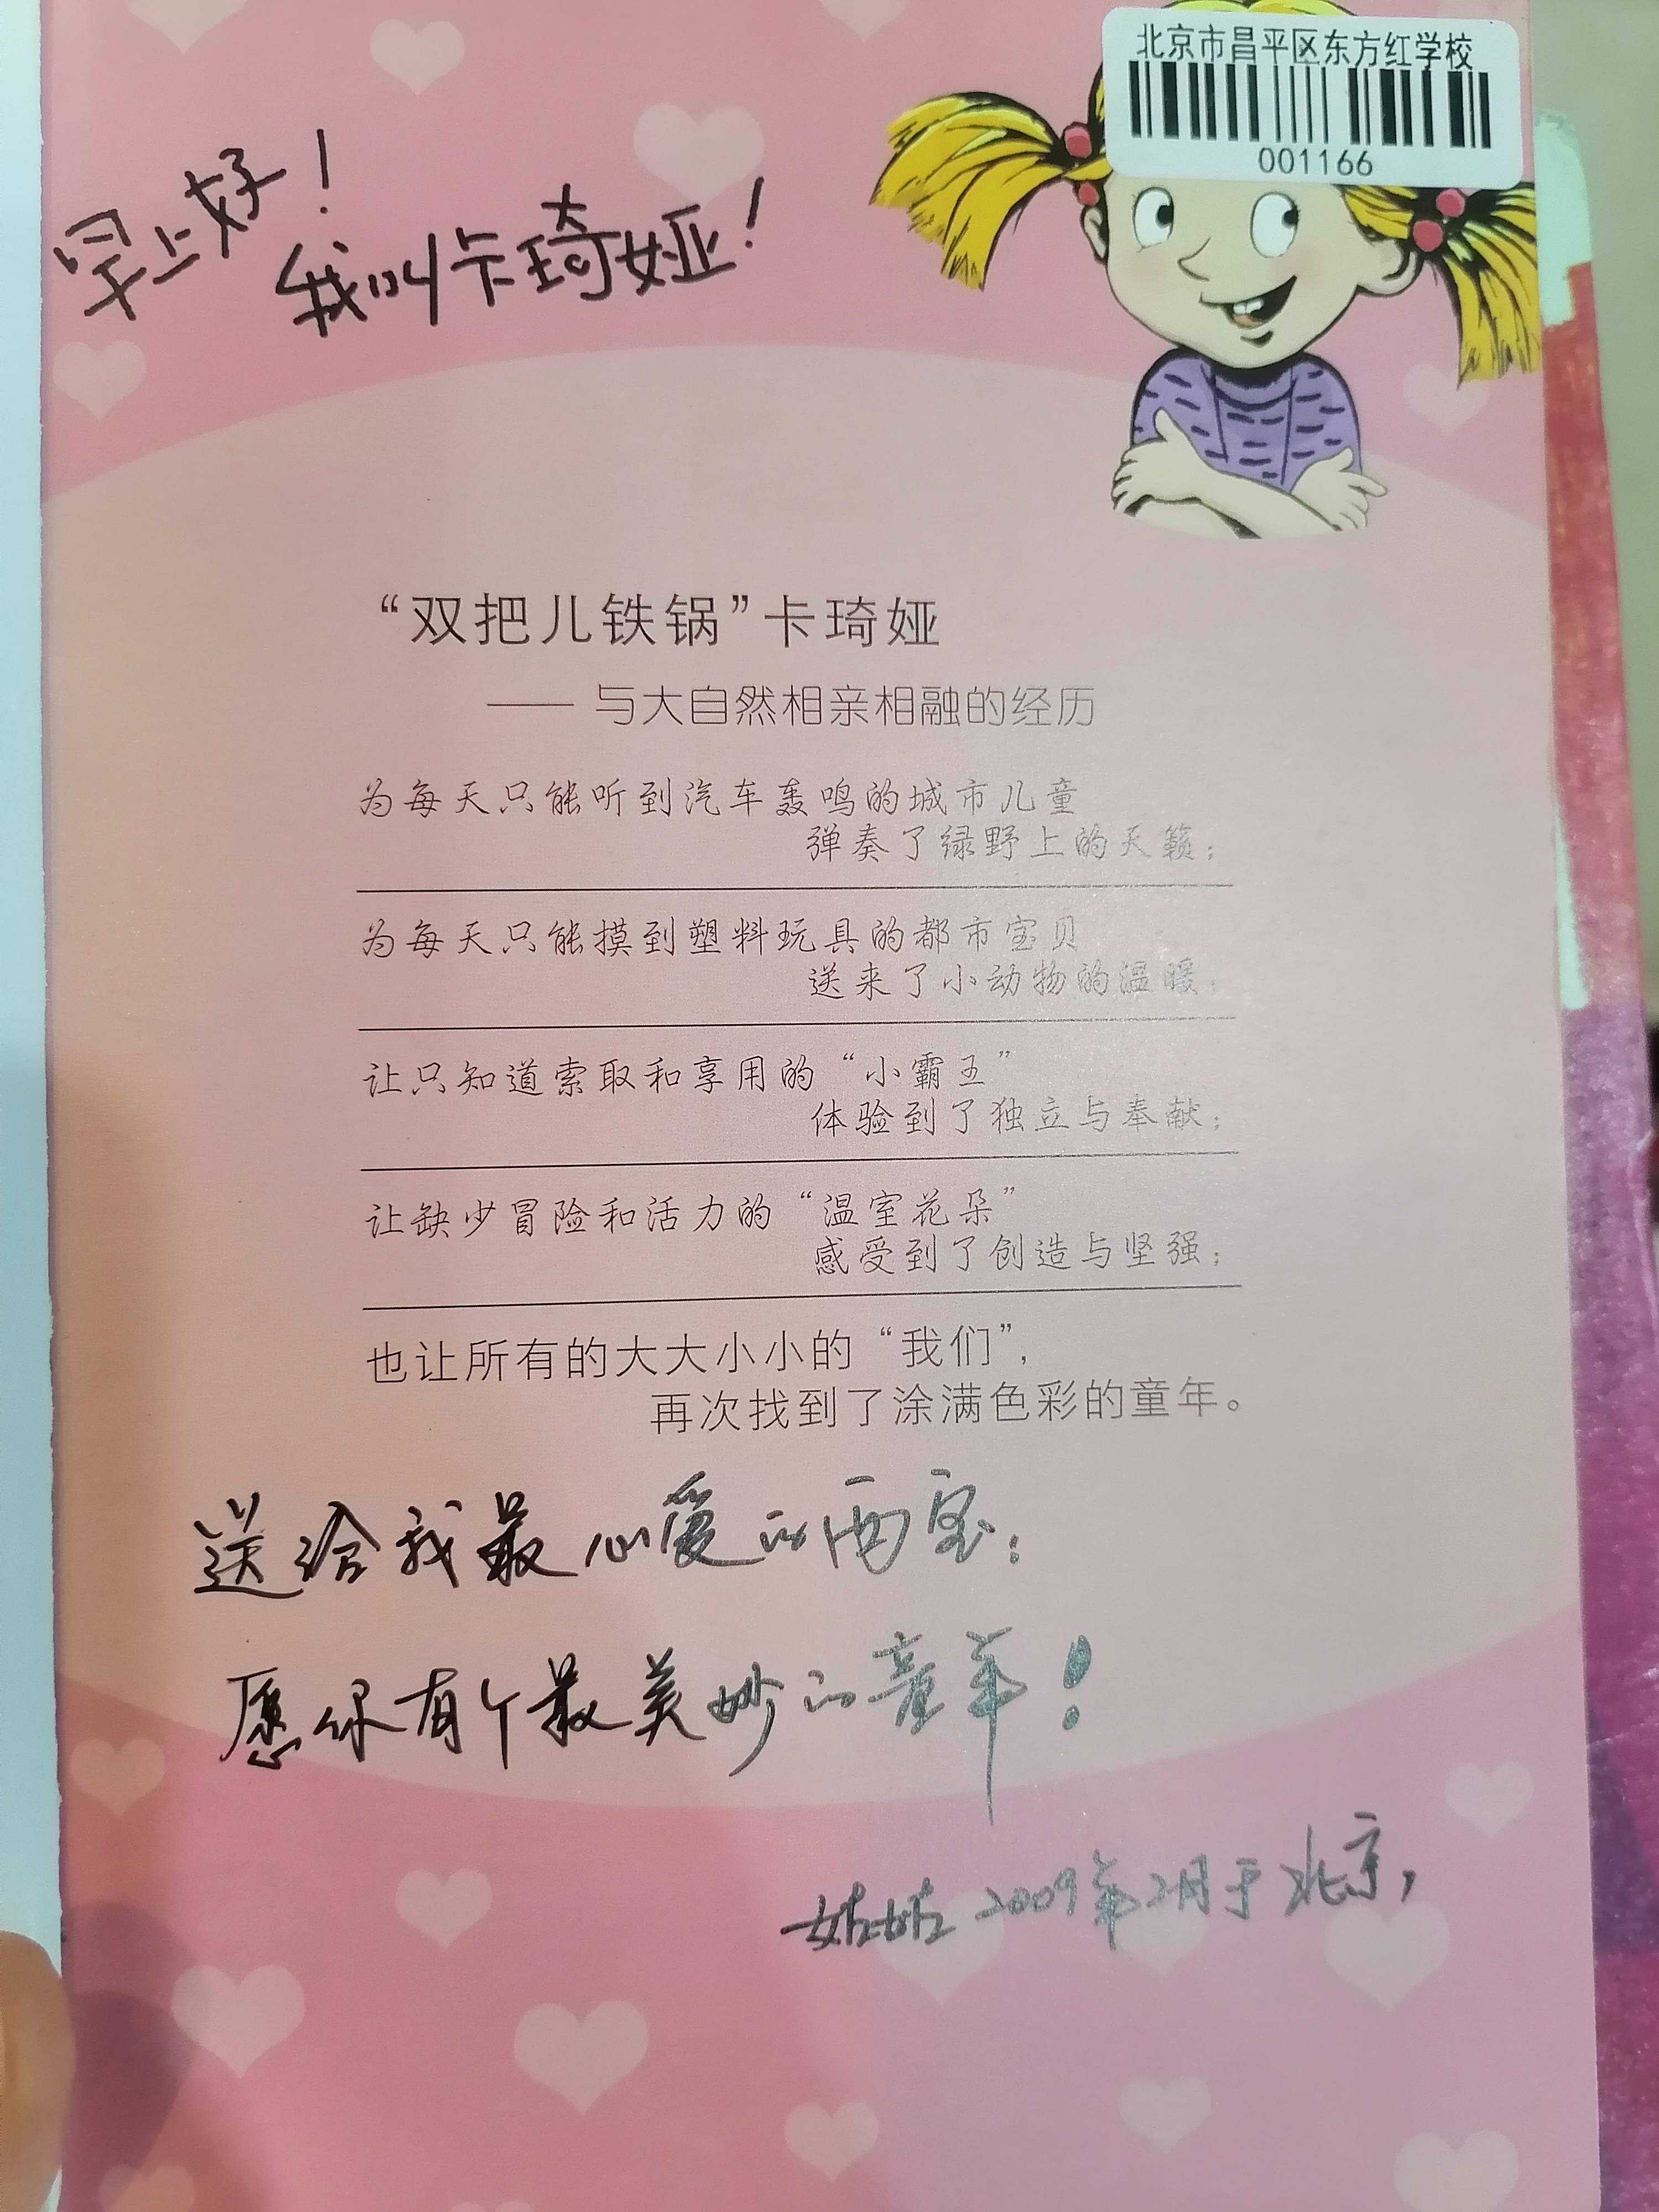 北京市昌平区东方红学校
001166
早上好！
我叫卡琦娅！
“双把儿铁锅”卡琦娅
—— 与大自然相亲相融的经历
为每天只能听到汽车轰鸣的城市儿童
弹奏了绿野上的天籁；
为每天只能摸到塑料玩具的都市宝贝
送来了小动物的温暖；
让只知道索取和享用的“小霸王”
体验到了独立与奉献；
让缺少冒险和活力的“温室花朵”
感受到了创造与坚强；
也让所有的大大小小的“我们”，
再次找到了涂满色彩的童年。
送给我最心爱的雨宝：
愿你有个最美妙的童年！
姑姑 2009年2月于北京,